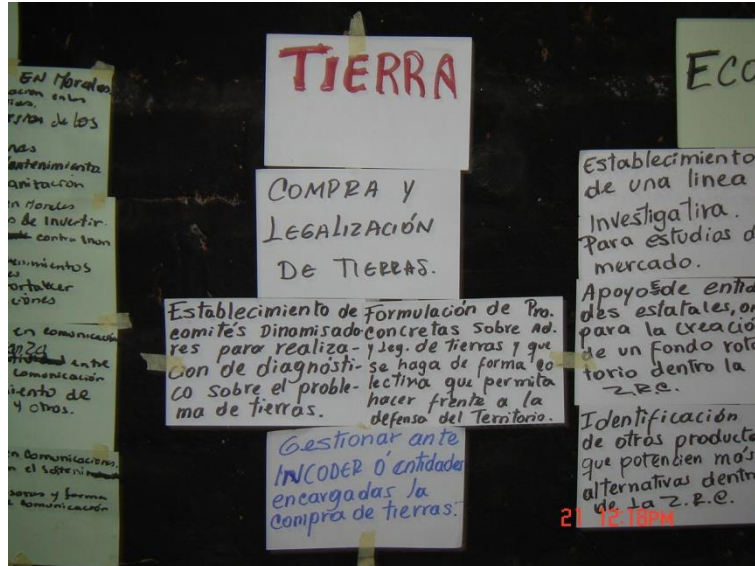 EN Morales
sion de los
mantenimiento
anización
en Morales
o de Invertir.
contra Inun
ortalecer
en comunicación
entre
comunicación
iento de
y otros.
en comunicaciones
y forma
comunicación
TIERRA
COMPRA Y
LEGALIZACIÓN
DE TIERRAS.
Establecimiento de
comités Dinamisado-
res para realiza-
cion de diagnósti-
co sobre el proble-
ma de tierras.
Formulación de Pro.
concretas sobre Ad.
y leg. de tierras y que
se haga de forma co
lectiva que permita
hacer frente a la
defensa del Territorio.
Gestionar ante
INCODER Ó entidades
encargadas la
compra de tierras.
ECO
Establecimiento
de una linea
Investigativa.
Para estudios d
mercado.
Apoyo de entid
des estatales, on
para la creació
de un fondo rota
torio dentro la
Z.R.C.
Identificación
de otros producto
que potencien más
alternativas dentro
de la Z.R.C.
21 12:18PM